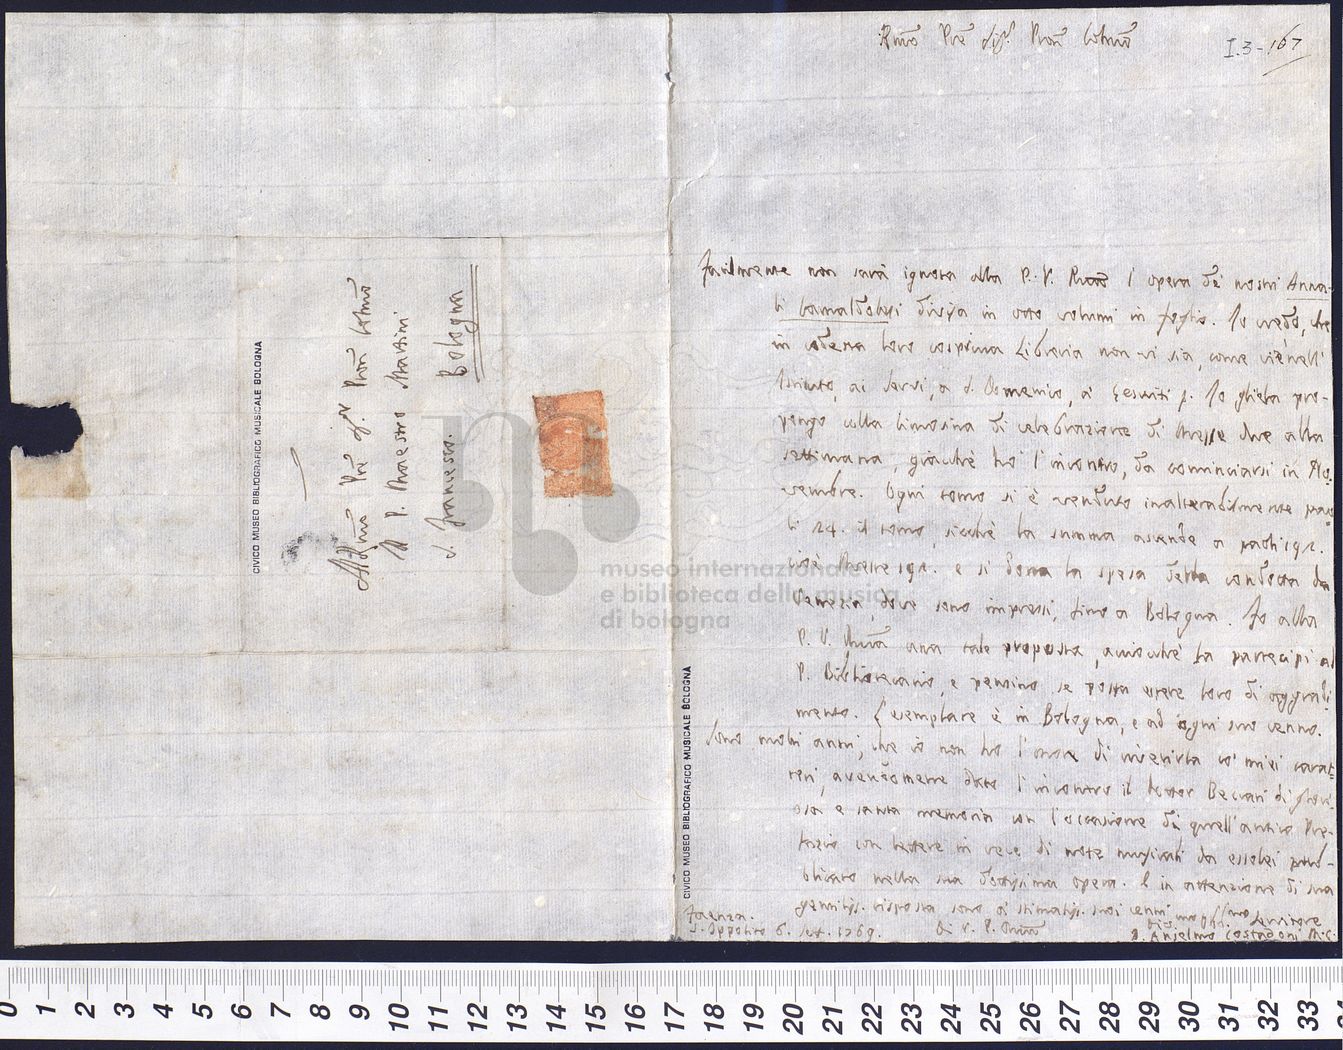 Rmo Pre Sigr Pron Colmo
I.3-167
Facilmente non sarà ignota alla P. V. Rma l'opera de' nostri Anna-
li Camaldolesi divisa in otto volumi in foglio. Io credo, che
in codesta loro cospicua Libreria non vi sia, come vi è nell'
Istituto, ai Servi, a S. Domenico, a' Gesuiti p. Io gliela pro-
pongo colla limosina di celebrazione di Messe due alla
settimana, giacchè ho l'incontro, da cominciarsi in No-
vembre. Ogni tomo si è venduto inalterabilmente pao
li 24. il tomo, sicchè la summa ascende a paoli 192.
cioè Messe 192. e si dona la spesa della condotta da
Venezia, dove sono impressi, sino a Bologna. Fo alla
P. V. Rma una tale proposta, acciocchè la partecipi al
P. Bibliotecario, e pensino, se possa essere loro di aggradi
mento. L'esemplare è in Bologna, e ad ogni suo cenno.
Sono molti anni, che io non ho l'onore di riverirla co' miei carat-
teri, avendomene dato l'incontro il Dottor Beccari di
e santa memoria con l'occasione di quell'antico Pre-
fazio con lettere in vece di note musicali da essolei pub-
blicato nella sua dottissima opera. E in attenzione di sua
gentiliss. risposta sono a' stimatiss. suoi cenni
Faenza.
S. Ippolito 6. Set. 1769.
Di V. P. Rma
Divmo Obbmo Servitore
D. Anselmo Costadoni M.C.
Al Rmo Pre Sigr Pron Colmo
Il P. Maestro Martini
S. Francesco.
Bologna
CIVICO MUSEO BIBLIOGRAFICO MUSICALE BOLOGNA
CIVICO MUSEO BIBLIOGRAFICO MUSICALE BOLOGNA
museo internazionale
e biblioteca della musica
di bologna
0 1 2 3 4 5 6 7 8 9 10 11 12 13 14 15 16 17 18 19 20 21 22 23 24 25 26 27 28 29 30 31 32 33